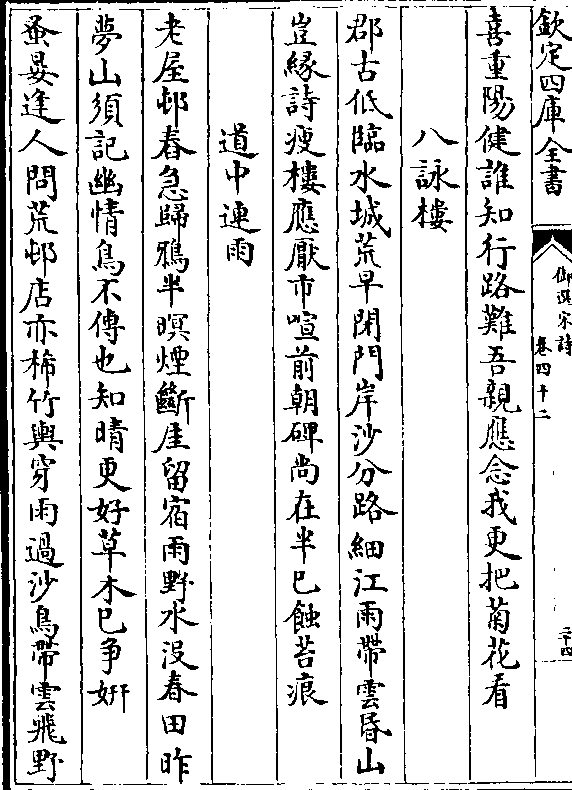 欽定四庫全書
御選宋詩
卷四十二
二十四
喜重陽健誰知行路難吾親應念我更把菊花看
八詠樓
郡古低臨水城荒早閉門岸沙分路細江雨帶雲昏山
豈緣詩瘦樓應厭市喧前朝碑尚在半已蝕苔痕
道中連雨
老屋邨舂急歸鴉半暝煙斷厓留宿雨野水没春田昨
夢山須記幽情鳥不傳也知晴更好草木已争姸
蚤晏逢人問荒邨店亦稀竹輿穿雨過沙鳥帶雲飛野